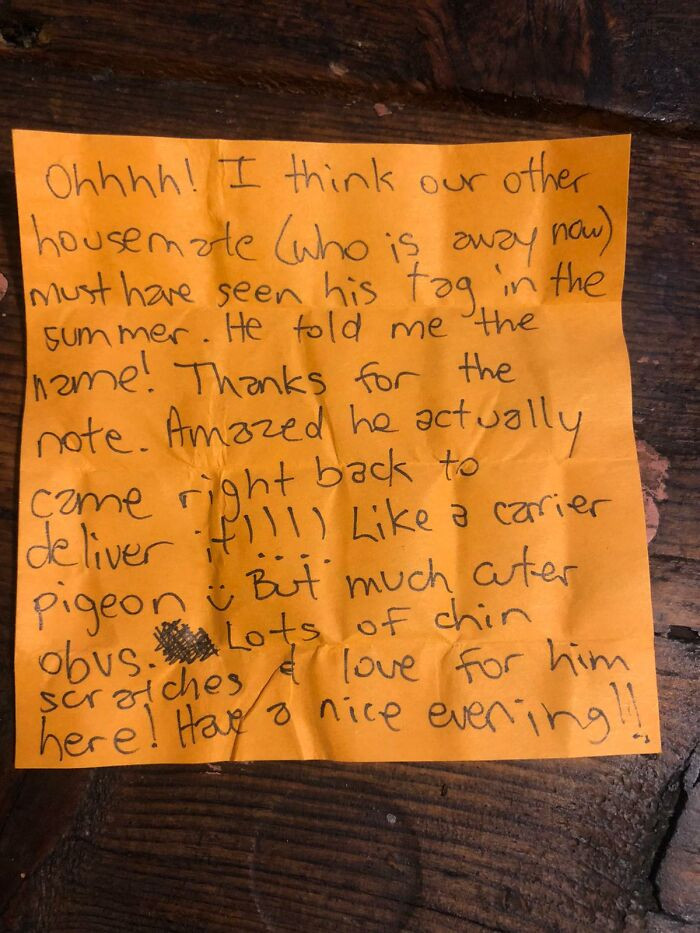 Ohhhh! I think our other
housemate (who is away now)
must have seen his tag in the
summer. He told me the
name! Thanks for the
note. Amazed he actually
came right back to
deliver it!!!!! Like a carrier
pigeon :) But much cuter
obvs. Lots of chin
scratches & love for him
here! Have a nice evening!!